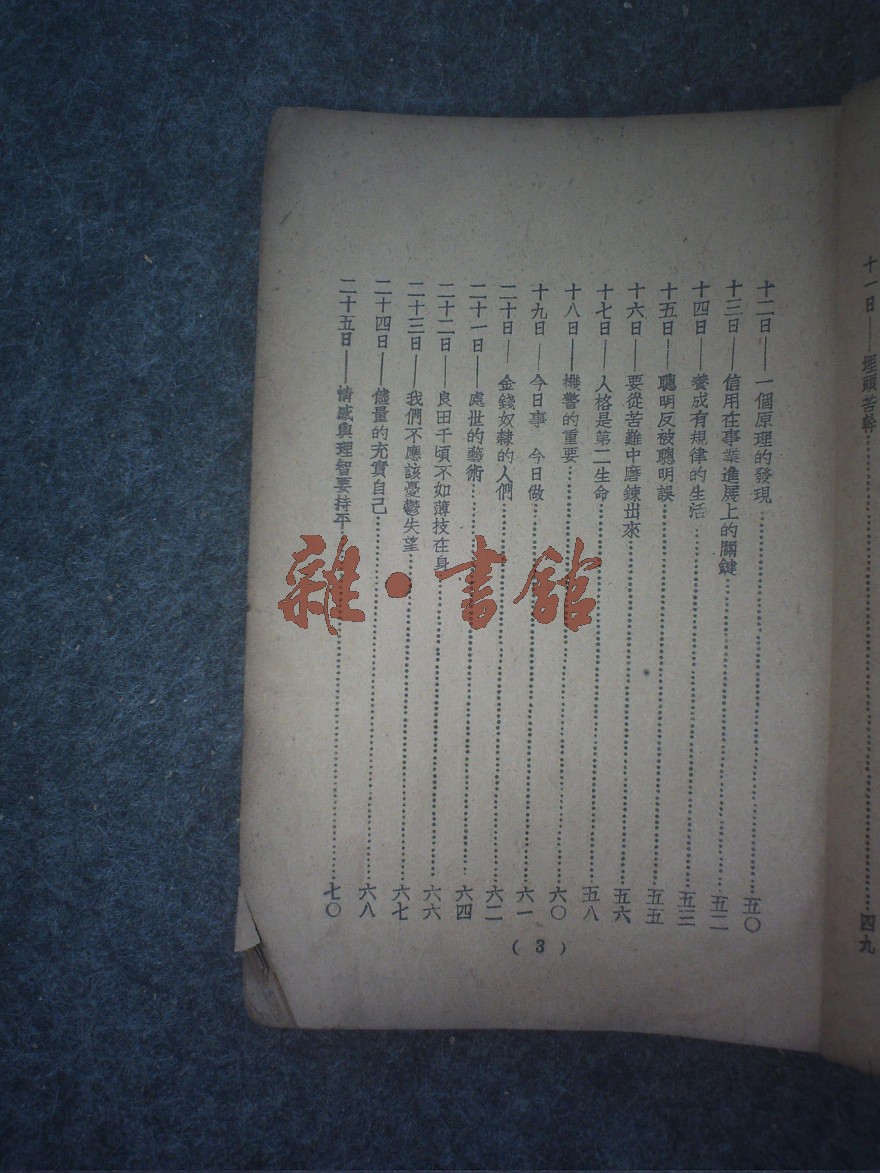 十一日——埋頭苦幹……………………四九
十二日——一個原理的發現……………………五〇
十三日——信用在事業進展上的關鍵……………………五二
十四日——養成有規律的生活……………………五三
十五日——聰明反被聰明誤……………………五五
十六日——要從苦難中磨鍊出來……………………五六
十七日——人格是第二生命……………………五八
十八日——機警的重要……………………六〇
十九日——今日事　今日做……………………六一
二十日——金錢奴隸的人們……………………六二
二十一日——處世的藝術……………………六四
二十二日——良田千頃不如薄技在身……………………六六
二十三日——我們不應該憂鬱失望……………………六七
二十四日——儘量的充實自己……………………六八
二十五日——情感與理智要持平……………………七〇
(3)
雜·書館